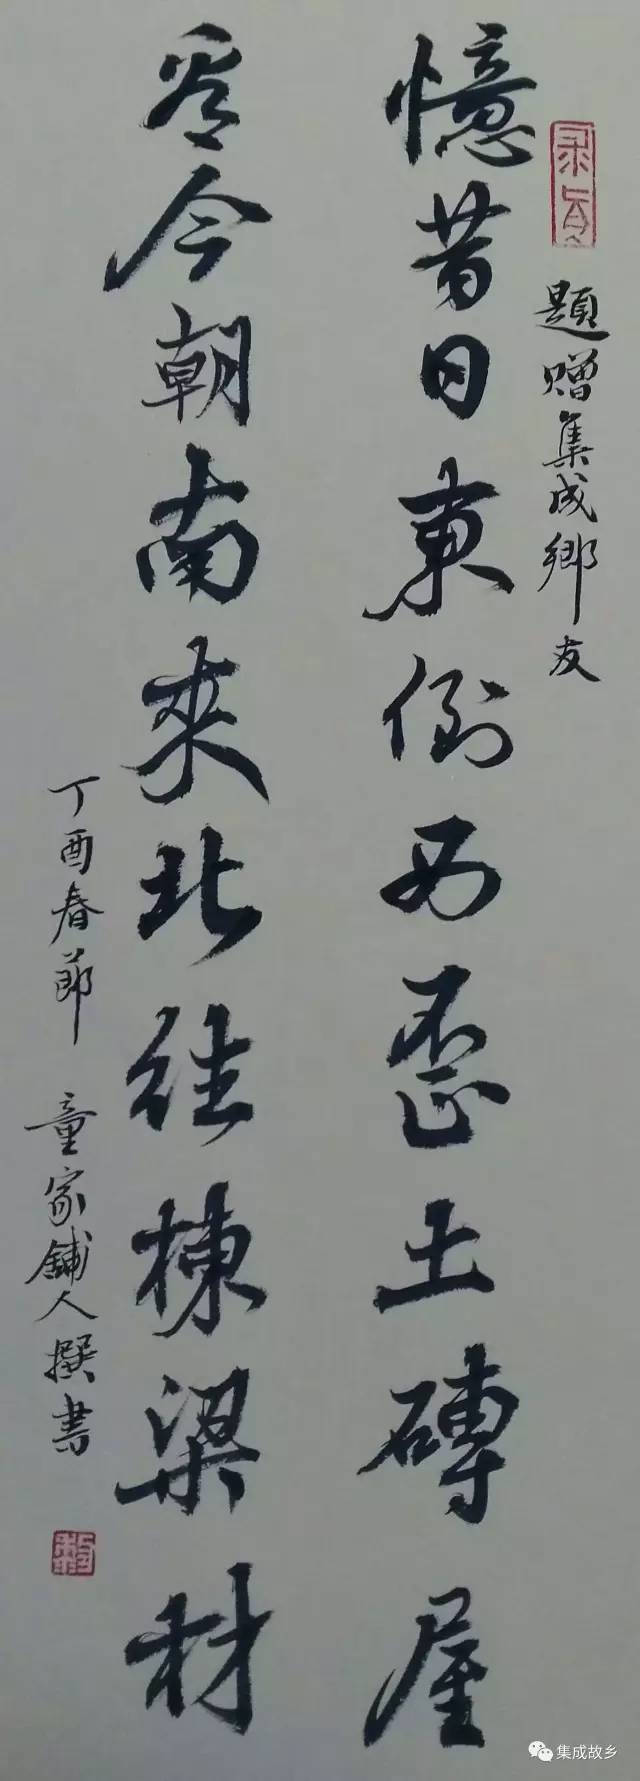 題贈集成鄉友
憶昔日東倒西歪土磚屋
看今朝南來北往棟梁材
丁酉春節 童家鋪人撰書
集成故乡